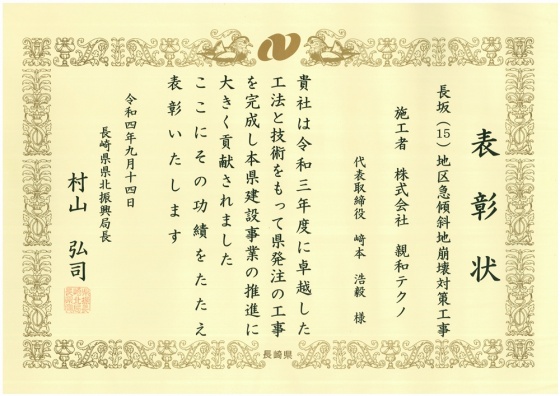 表彰状
長坂（15）地区急傾斜地崩壊対策工事
施工者　株式会社　親和テクノ
代表取締役　﨑本　浩毅　様
貴社は令和三年度に卓越した
工法と技術をもって県発注の工事
を完成し本県建設事業の推進に
大きく貢献されました
ここにその功績をたたえ
表彰いたします
令和四年九月十四日
長崎県県北振興局長
村山　弘司
長崎県